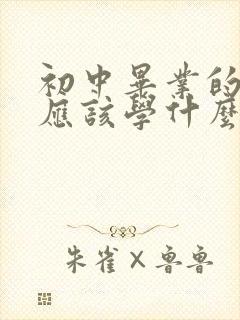 初中畢業的
應該學什麼
朱雀×魯魯